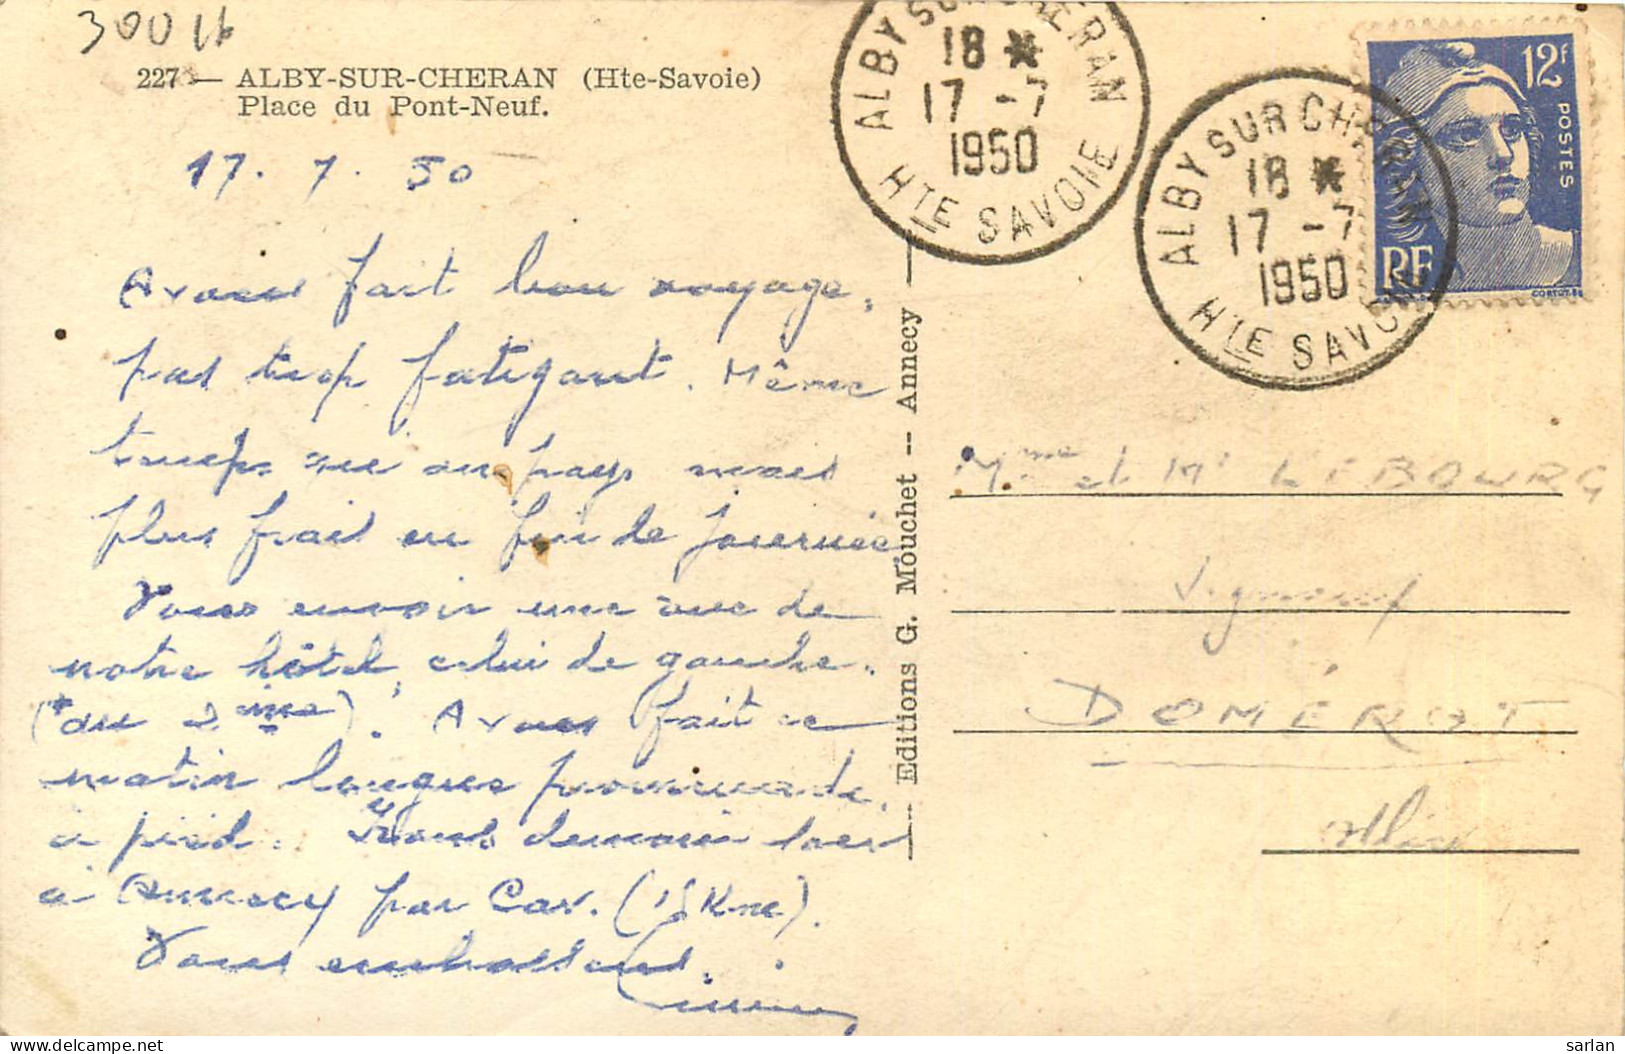 30016
227 — ALBY-SUR-CHERAN (Hte-Savoie)
Place du Pont-Neuf.
17. 7. 50
Avons fait bon voyage,
pas trop fatigant. Même
temps vie au pays mais
plus frais en fin de journée
Vous envoie une vue de
notre hôtel, celui de gauche.
(du 2ème). Avons fait ce
matin longue promenade
à pied. Irons demain
à Annecy par Car. (15 Kme).
Vous embrassons.
Editions G. Mouchet -- Annecy
ALBY SUR CHERAN
18 *
17 -7
1950
HTE SAVOIE
ALBY SUR CHERAN
18 *
17 -7
1950
HTE SAVOIE
12F
POSTES
RF
Mme et Mr LEBOURG
DOMÉROT
Allier
sarlan